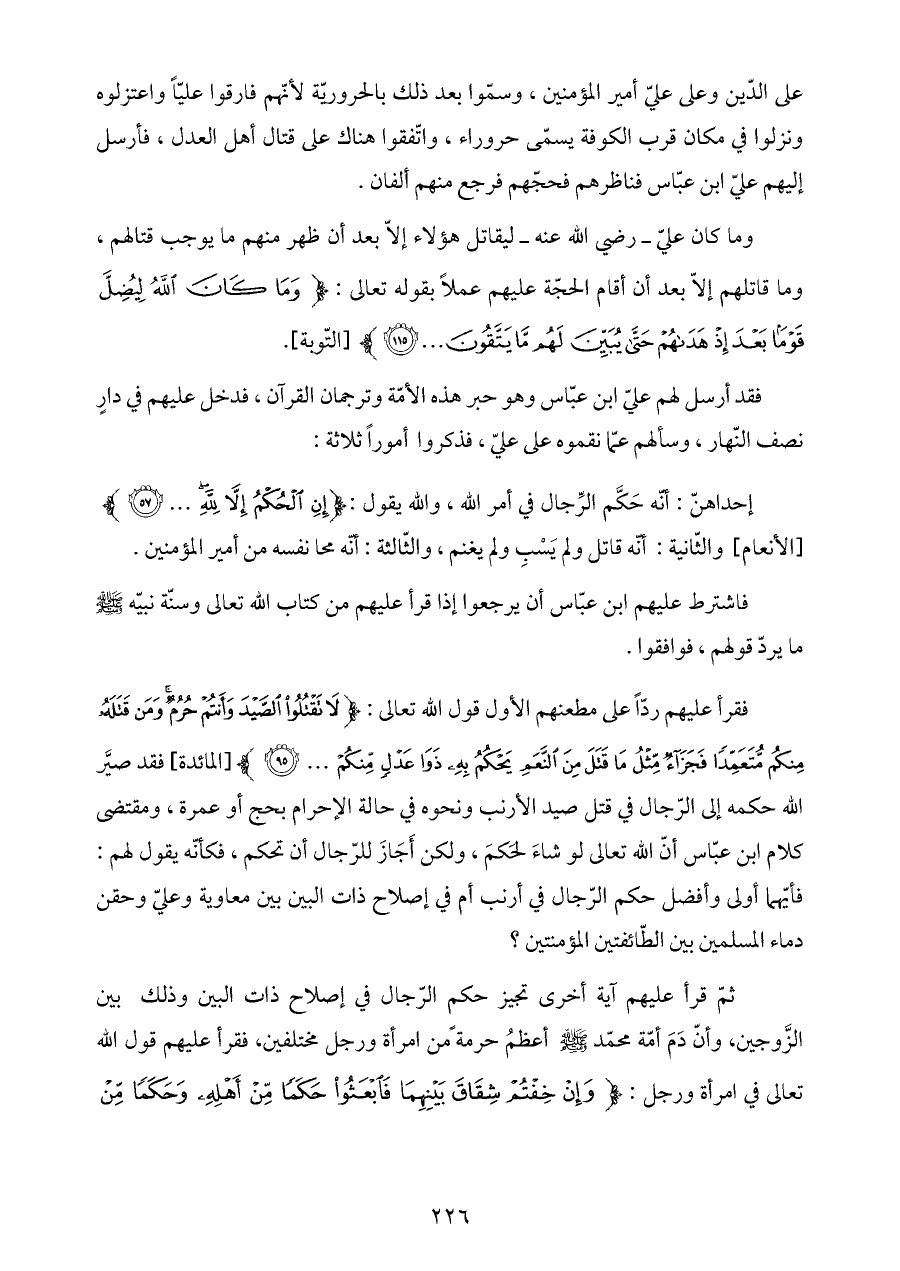 على الدّين وعلى عليّ أمير المؤمنين ، وسمّوا بعد ذلك بالحروريّة لأنّهم فارقوا عليّاً واعتزلوه
ونزلوا في مكان قرب الكوفة يسمّى حروراء ، واتّفقوا هناك على قتال أهل العدل ، فأرسل
إليهم عليّ ابن عبّاس فناظرهم فحجّهم فرجع منهم ألفان .
وما كان عليّ ـ رضي الله عنه ـ ليقاتل هؤلاء إلاّ بعد أن ظهر منهم ما يوجب قتالهم ،
وما قاتلهم إلاّ بعد أن أقام الحجّة عليهم عملاً بقوله تعالى : ﴿ وَمَا كَانَ ٱللَّهُ لِيُضِلَّ
قَوْمًۢا بَعْدَ إِذْ هَدَىٰهُمْ حَتَّىٰ يُبَيِّنَ لَهُم مَّا يَتَّقُونَ... ١١٥ ﴾ [التّوبة].
فقد أرسل لهم عليّ ابن عبّاس وهو حبر هذه الأمّة وترجمان القرآن ، فدخل عليهم في دارٍ
نصف النّهار ، وسألهم عمّا نقموه على عليّ ، فذكروا أموراً ثلاثة :
إحداهنّ : أنّه حَكَّم الرِّجال في أمر الله ، والله يقول : ﴿إِنِ ٱلْحُكْمُ إِلَّا لِلَّهِ ۖ ... ٥٧ ﴾
[الأنعام] والثّانية : أنّه قاتل ولم يَسْبِ ولم يغنم ، والثّالثة : أنّه محا نفسه من أمير المؤمنين .
فاشترط عليهم ابن عبّاس أن يرجعوا إذا قرأ عليهم من كتاب الله تعالى وسنّة نبيّه ﷺ
ما يردّ قولهم ، فوافقوا .
فقرأ عليهم ردّاً على مطعنهم الأول قول الله تعالى : ﴿ لَا تَقْتُلُوا۟ ٱلصَّيْدَ وَأَنتُمْ حُرُمٌ ۚ وَمَن قَتَلَهُۥ
مِنكُم مُّتَعَمِّدًا فَجَزَآءٌ مِّثْلُ مَا قَتَلَ مِنَ ٱلنَّعَمِ يَحْكُمُ بِهِۦ ذَوَا عَدْلٍ مِّنكُمْ ... ٩٥ ﴾ [المائدة] فقد صيَّر
الله حكمه إلى الرّجال في قتل صيد الأرنب ونحوه في حالة الإحرام بحج أو عمرة ، ومقتضى
كلام ابن عبّاس أنّ الله تعالى لو شاءَ لحَكمَ ، ولكن أَجَازَ للرّجال أن تحكم ، فكأنّه يقول لهم :
فأيّهما أولى وأفضل حكم الرّجال في أرنب أم في إصلاح ذات البين بين معاوية وعليّ وحقن
دماء المسلمين بين الطّائفتين المؤمنتين ؟
ثمّ قرأ عليهم آية أخرى تجيز حكم الرّجال في إصلاح ذات البين وذلك بين
الزَّوجين، وأنّ دَمَ أمّة محمّد ﷺ أعظمُ حرمة ًمن امرأة ورجل مختلفين، فقرأ عليهم قول الله
تعالى في امرأة ورجل : ﴿ وَإِنْ خِفْتُمْ شِقَاقَ بَيْنِهِمَا فَٱبْعَثُوا۟ حَكَمًا مِّنْ أَهْلِهِۦ وَحَكَمًا مِّنْ
٢٢٦